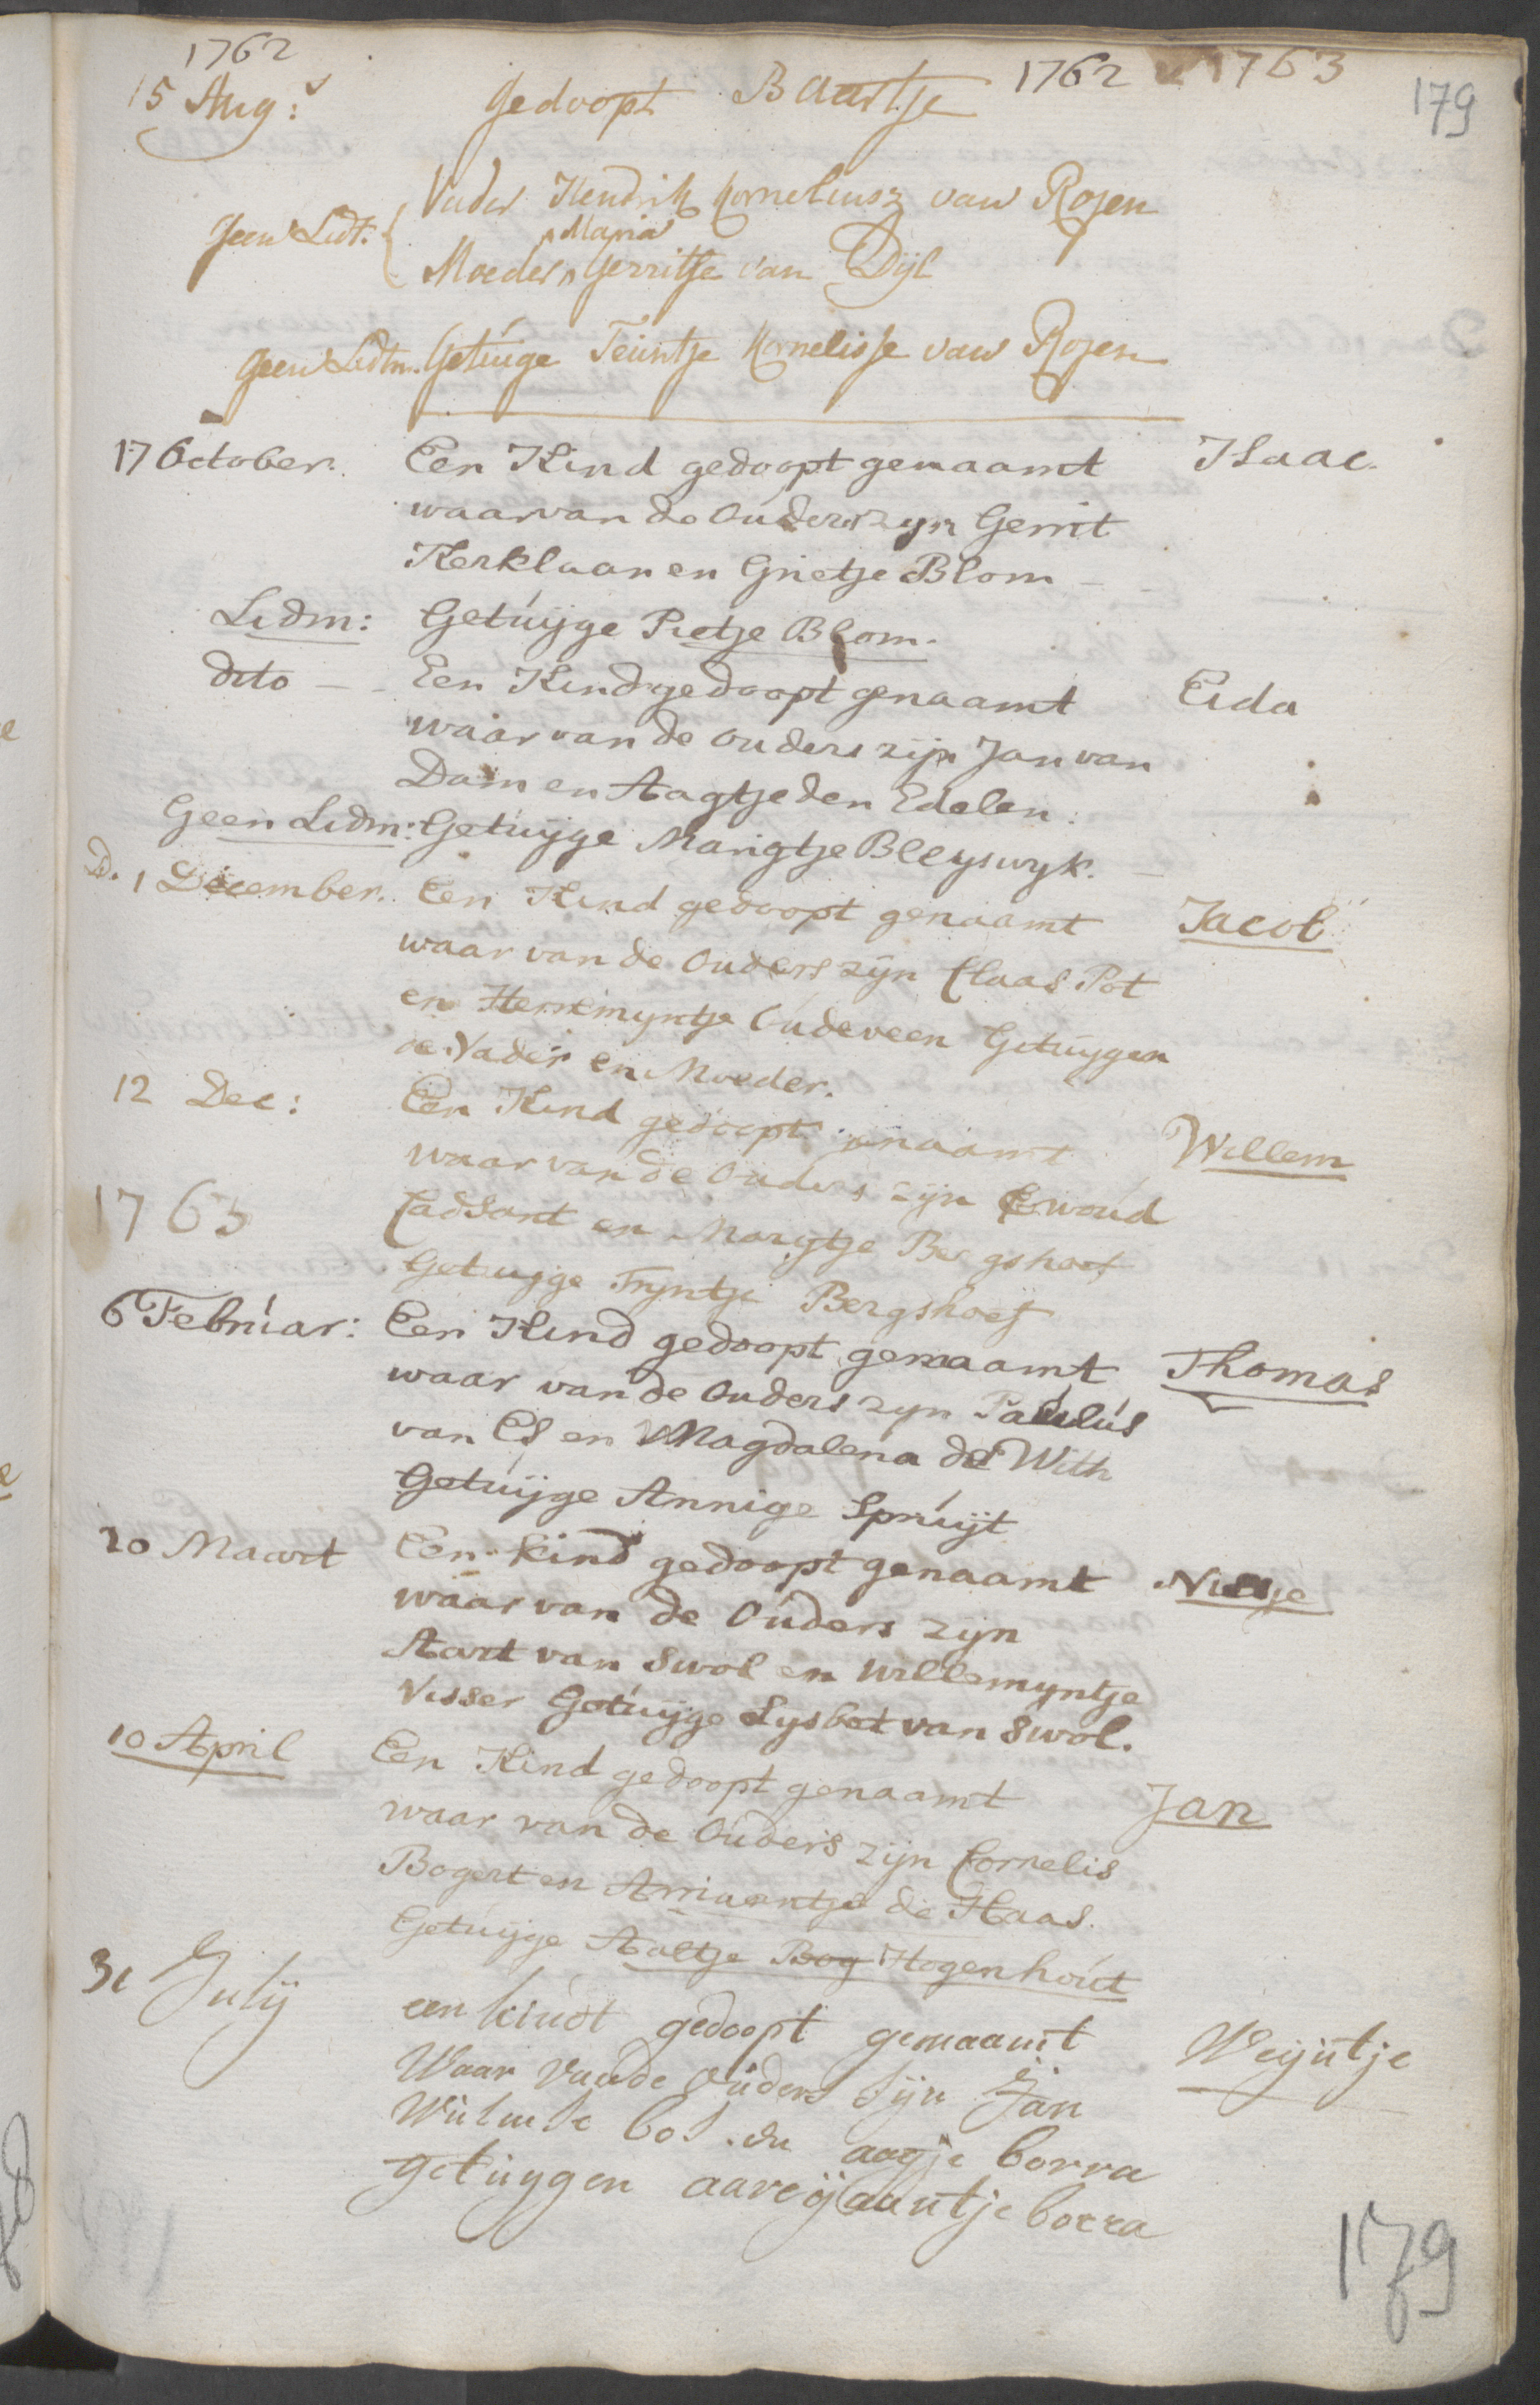 1762
1762 1763
179
15 Aug:s gedoopt Baartje
Vader Hendrik Korneliusz van Rozen
geen Lidt:
Maria
Moeder ^ Gerritse van Dijl
geen Lidtn. Getuige Teuntje Kornelisse van Rozen
17 October. Een Kind gedoopt genaamt Isaac.
waarvan de Ouders zyn Gerrit
Kerklaan en Grietje Blom
Lidm: Getuijge Pietje Blom.
dito Een Kind gedoopt genaamt Eida
waar van de ouders zijn Jan van
Dam en Aagtje den Edelen.
Geen Lidm: Getuijge Marigtje Bleyswyk.
D. 1 December. Een Kind gedoopt genaamt Jacob
waar van de Ouders zijn Claas Pot
en Hermijntje Oudeveen Getuijgen
de Vader en Moeder.
12 Dec: Een Kind gedoopt genaamt Willem
waar van de Ouders zijn Ewoud
1763
Cadsant en Margtje Bergshoef
Getuijge Tryntje Bergshoef
6 Februar: Een Kind gedoopt genaamt Thomas
waar van de Ouders zyn Paulus
van Es en Magdalena de With
Getuijge Annige Spruijt
20 Maart Een kind gedoopt genaamt
waar van de Ouders zijn
Aart van Swol en Willemyntje
Visser Getuijge Lysbet van Swol.
10 April Een Kind gedoopt genaamt Jan
waar van de Ouders zijn Cornelis
Bogert en Arriaantje de Haas.
Getuijge Aaltje Bog Hogenhout
31 Julij een kindt gedoopt genaamt Weijntje
Waar van de ouders sijn Jan
Wilmse bos en aagje borra
getuijgen aareijaantje borra
179